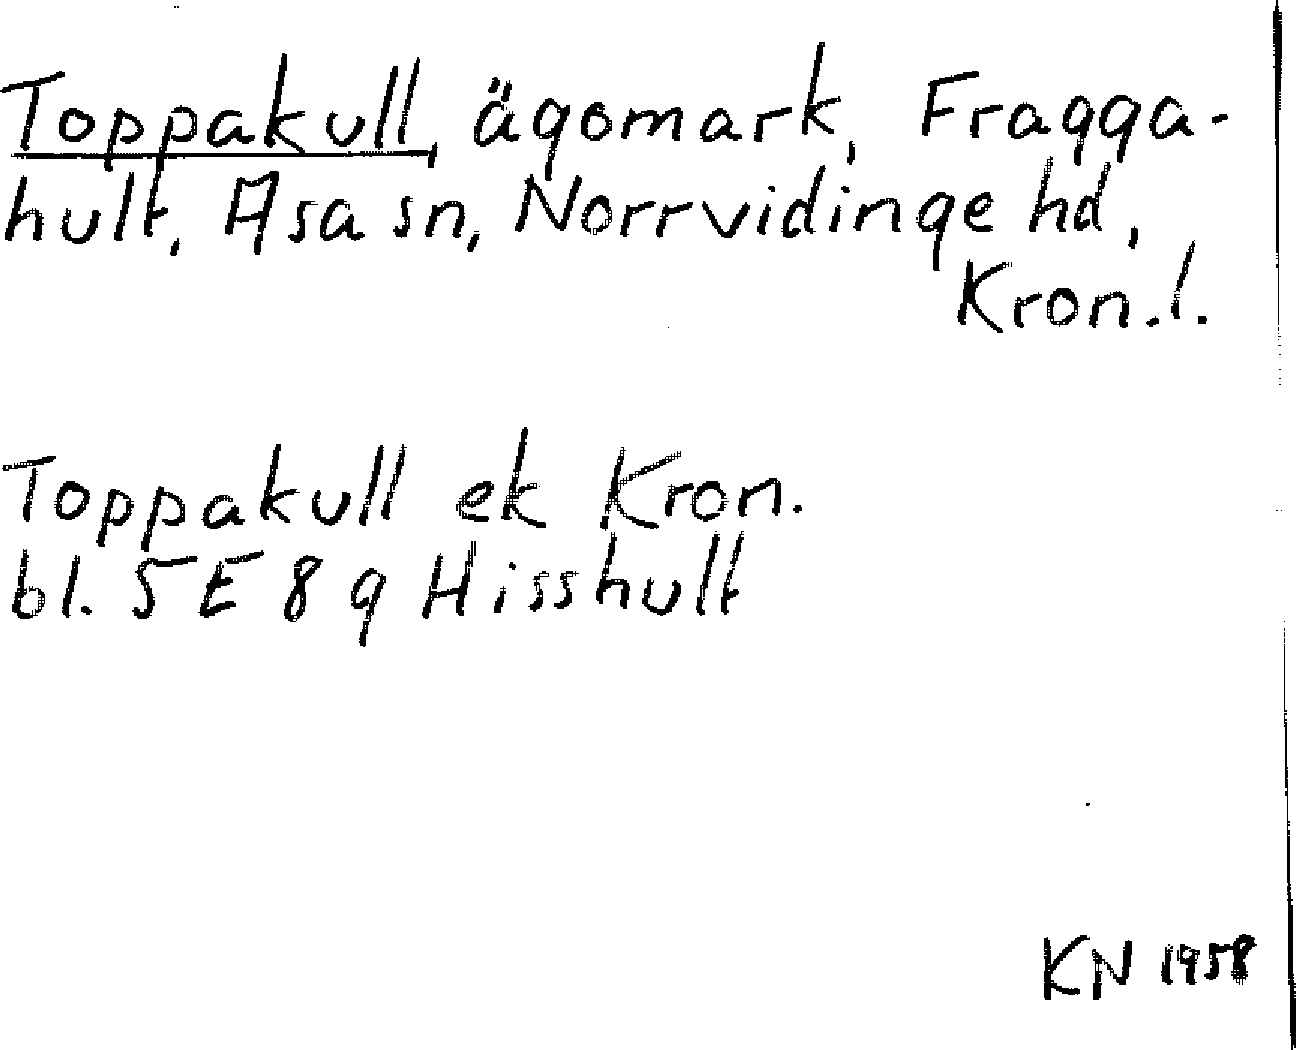 Toppakull, ägomark, Fragga-
hult, Asa sn, Norrvidinge hd,
Kron.l.
Toppakull ek Kron.
bl. 5 E 8 g Hisshult
KN 1958